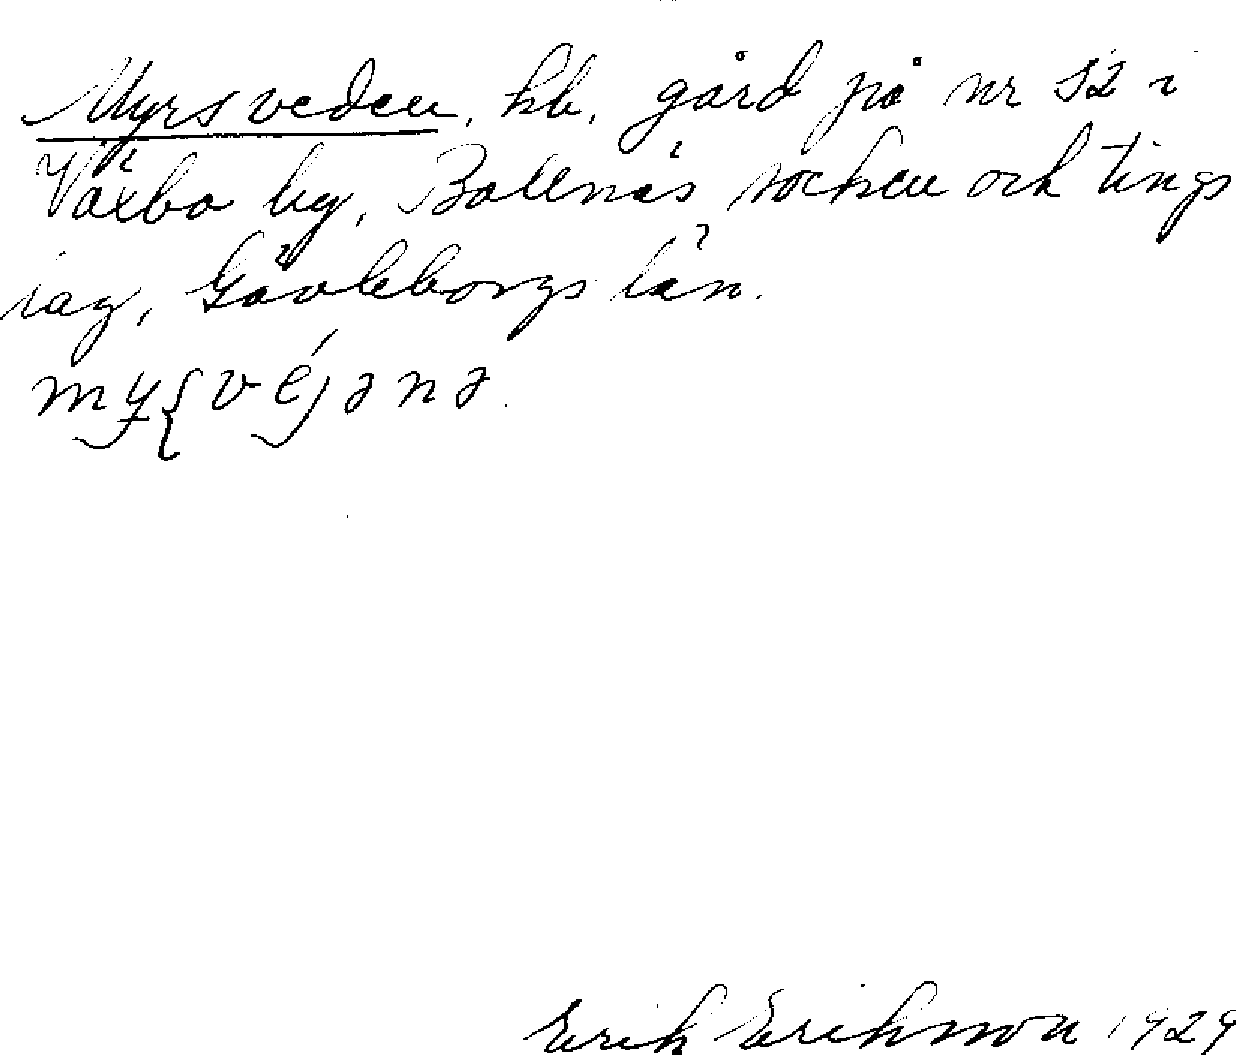 Myrsveden, hb. gård på nr 52 i
Växbo by, Bollnäs socken och tings
lag, Gävleborgs län.
Erik Erikson 1929